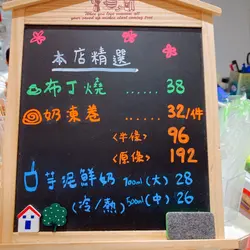 本店精選
布丁燒 ...... 38
奶凍卷 ...... 32/件
<半條> 96
<原條> 192
芋泥鮮奶 700ml(大) 28
(冷/熱) 500ml(中) 26